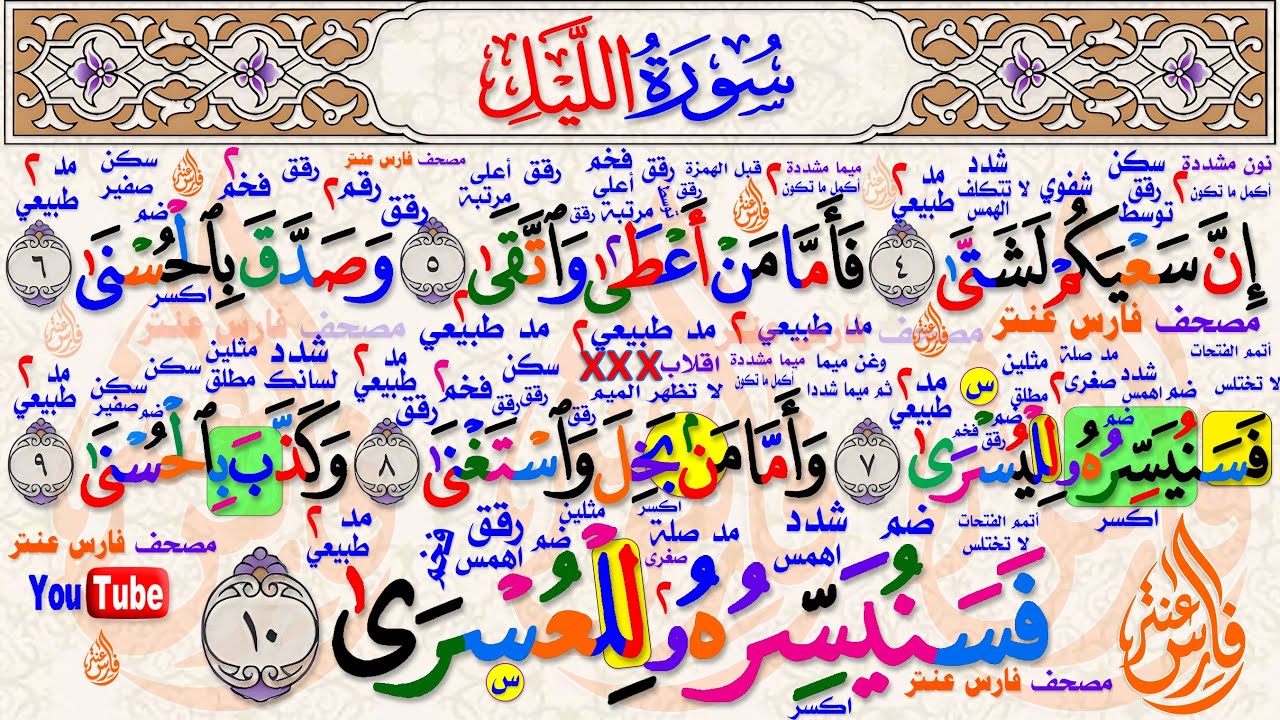 سُورَةُ اللَّيْلِ
نون مشددة سكن شدد مد ٢ ميما مشددة ٢ قبل الهمزة رقق فخم رقق أعلى رقق مصحف فارس عنتر رقق ٢ سكن مد ٢
أكمل ما تكون ٢ رقق شفوي لا تتكلف طبيعي أكمل ما تكون رقق أعلى مرتبة رقم ٢ فخم صفير طبيعي
توسط الهمس مرتبة رقق رقق ضم
إِنَّ سَعْيَكُمْ لَشَتَّىٰ ٤ فَأَمَّا مَنْ أَعْطَىٰ وَٱتَّقَىٰ ٥ وَصَدَّقَ بِٱلْحُسْنَىٰ ٦
اكسر
مصحف فارس عنتر مد طبيعي ٢ مد طبيعي ٢ مد طبيعي ٢ مصحف فارس عنتر
أتمم الفتحات مد صلة مثلين وغن ميما ميما مشددة اقلاب XXX سكن مد ٢ شدد مثلين سكن مد ٢
لا تختلس شدد ضم اهمس صغرى ٢ مطلق س مد ٢ طبيعي ثم ميما شددا أكمل ما تكون لا تظهر الميم رقق فخم طبيعي لسانك مطلق سكن صفير طبيعي
ضم ضم رقق فخم رقق رقق رقق ضم
فَسَنُيَسِّرُهُۥ لِلْيُسْرَىٰ ٧ وَأَمَّا مَنۢ بَخِلَ وَٱسْتَغْنَىٰ ٨ وَكَذَّبَ بِٱلْحُسْنَىٰ ٩
اكسر اكسر
أتمم الفتحات ضم شدد مد صلة مثلين رقق مد ٢ مصحف فارس عنتر
لا تختلس اهمس صغرى ضم اهمس فخم طبيعي
You Tube
فَسَنُيَسِّرُهُۥ لِلْعُسْرَىٰ ١٠
فارس عنتر
مصحف فارس عنتر اكسر س